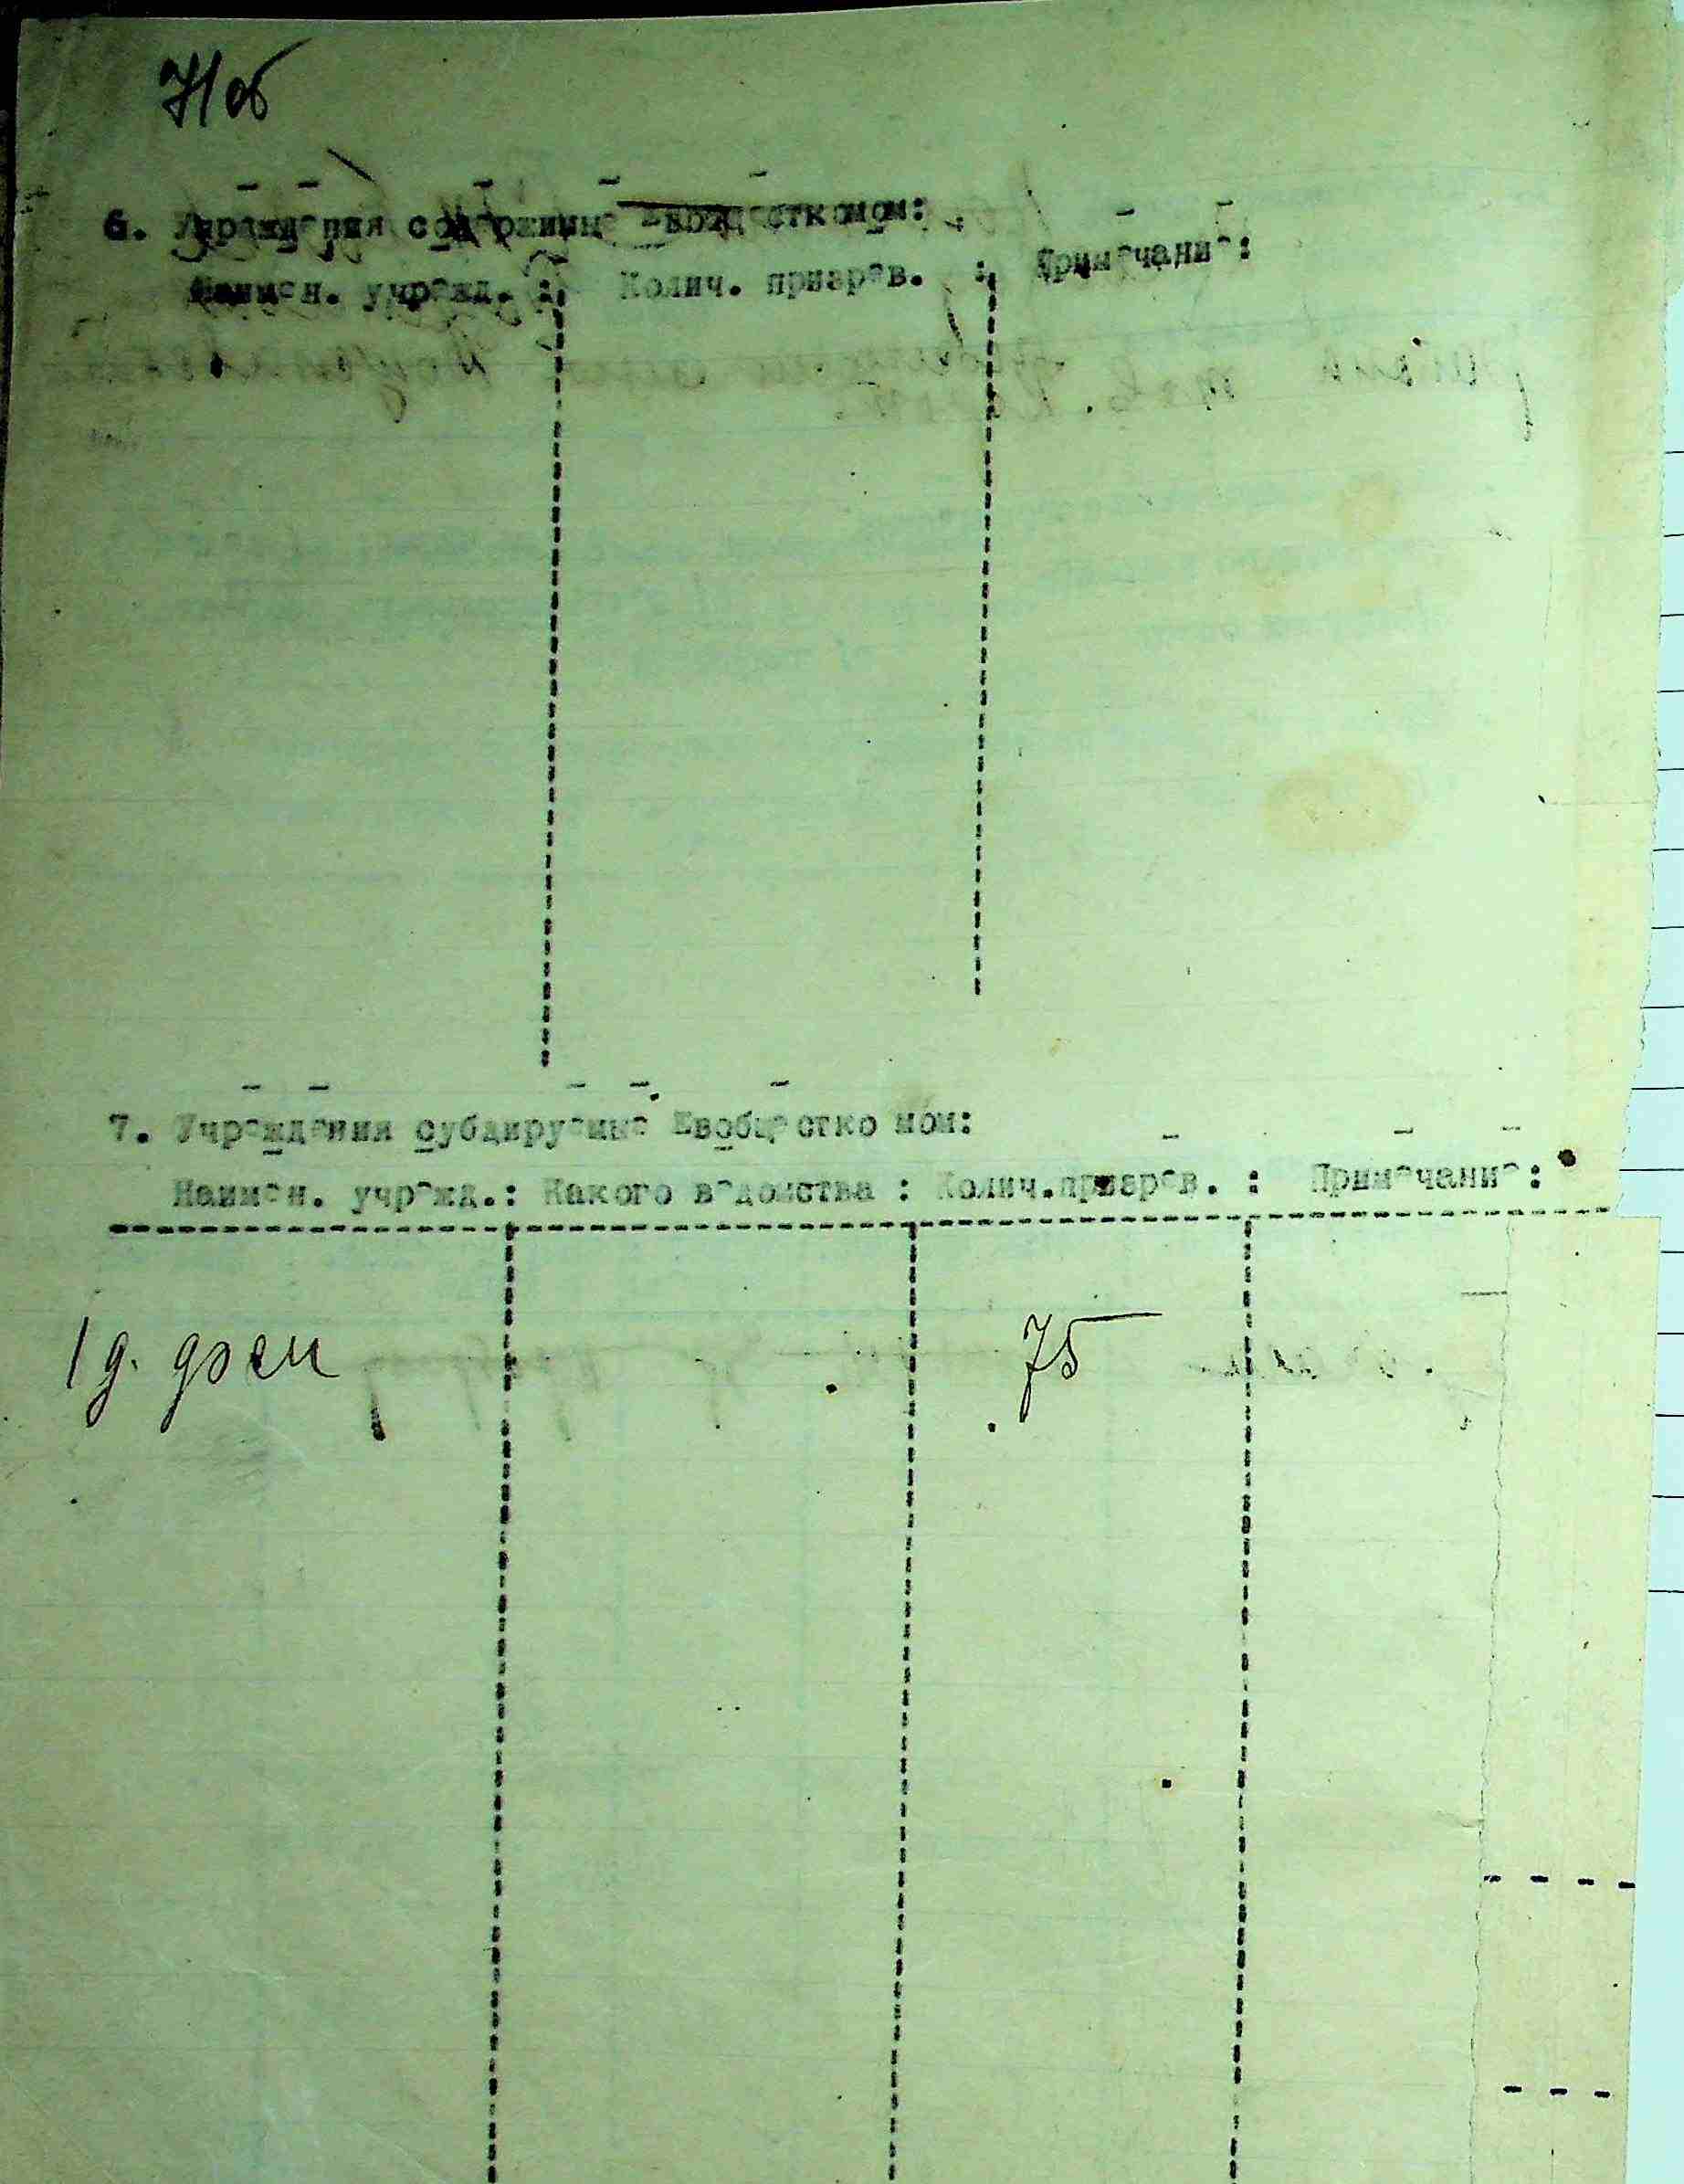 71 об
6. Учреждения содержимые Евобщестком ом:
Наимен. учрежд. : Колич. призрев. : Примечание:
7. Учреждения субдируемые Евобщестко мом:
Наимен. учрежд.: Какого ведомства : Колич.призрев. : Примечание:
1 д. дом 75